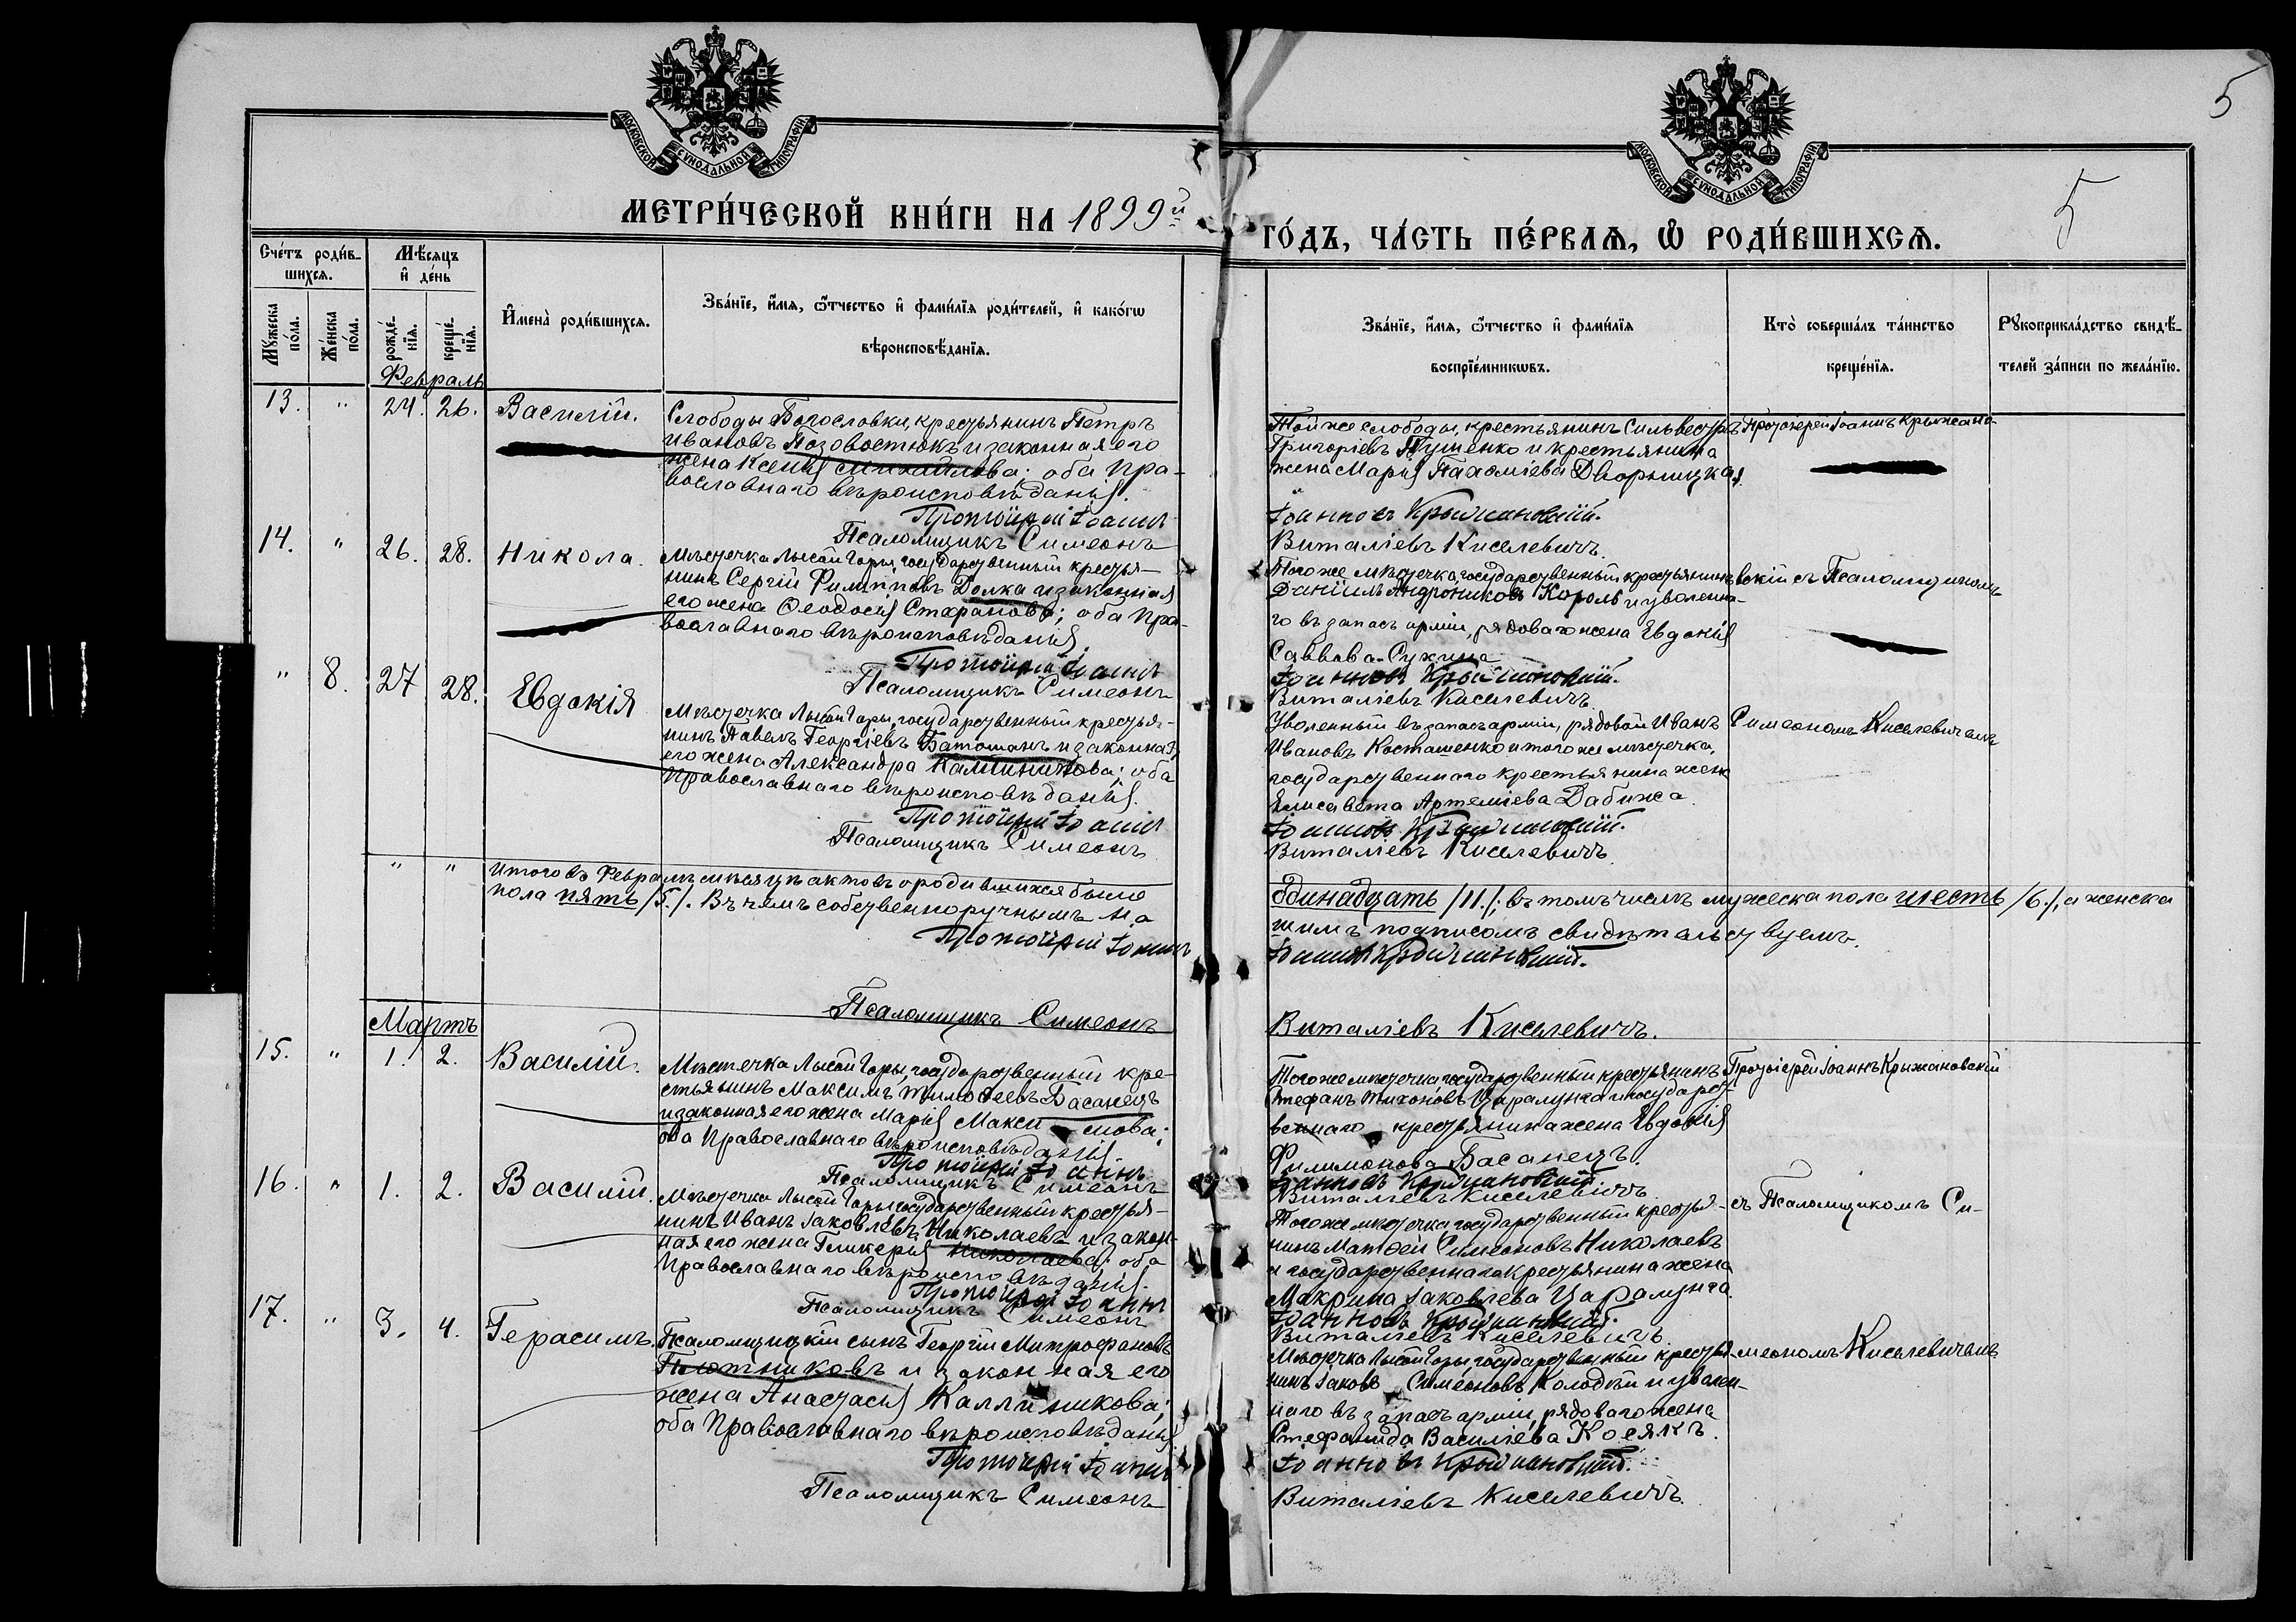 5
МОСКОВСКОЙ СѴНОДАЛЬНОЙ ТИПОГРАФІИ
МОСКОВСКОЙ СѴНОДАЛЬНОЙ ТИПОГРАФІИ
5
МЕТРИ́ЧЕСКОЙ КНИ́ГИ НА 1899й
ГО́ДЪ, ЧА́СТЬ ПЕ́РВАѦ, Ѡ҆ РОДИ́ВШИХСѦ.
Сче́тъ роди́в-
шихсѧ.
Мѣ́сѧцъ
и҆ де́нь
Мꙋ́жеска
по́ла.
Же́нска
по́ла.
рожде́-
нїѧ.
креще́-
нїѧ.
И҆мена̀ роди́вшихсѧ.
Зва́нїе, и҆́мѧ, ѻ҆́тчество и҆ фамѝлїѧ роди́телей, и҆ како́гѡ
вѣроисповѣ́данїѧ.
Зва́нїе, и҆́мѧ, ѻ҆́тчество и҆ фамѝлїѧ
воспрїе́мникѡвъ.
Кто̀ соверша́лъ та́инство
креще́нїѧ.
Рꙋкоприкла́дство свидѣ́-
телей за́писи по жела́нїю.
Февраль
13. " 24. 26. Василій.
Слободы Богословки, крестьянинъ Петръ
Ивановъ Позовостюкъ и законная его
жена Ксенія Михайлова; оба Пра-
вославнаго вѣроисповѣданія.
Протоіерей Іоаннъ
Псаломщикъ Симеонъ
Той же слободы, крестьянинъ Сильвестръ
Григоріевъ Тушенко и крестьянина
жена Марія Пахоміева Дворницкая.
Іоанновъ Крыжановскій.
Виталіевъ Киселевичъ.
Протоіерей Іоаннъ Крыжано-
14. " 26. 28. Никола.
Мѣстечка Лысой Горы, государственный крестья-
нинъ Сергій Филипповъ Долка и законная
его жена Ѳеодосія Стефанова; оба Пра-
вославнаго вѣроисповѣданія.
Протоіерей Іоаннъ
Псаломщикъ Симеонъ
Того же мѣстечка, государственный крестьянинъ
Даніилъ Андрониковъ Король и уволенна-
го въ запасъ арміи, рядоваго жена Евдокія
Саввова Сухина
Іоанновъ Крыжановскій.
Виталіевъ Киселевичъ.
вскій съ Псаломщикомъ
" 8. 27 28. Евдокія
Мѣстечка Лысой Горы, государственный крестья-
нинъ Павелъ Георгіевъ Батошанъ и законная
его жена Александра Каллиникова; оба
Православнаго вѣроисповѣданія.
Протоіерей Іоаннъ
Псаломщикъ Симеонъ
Уволенный въ запасъ арміи, рядовой Иванъ
Ивановъ Косташенко и того же мѣстечка,
государственнаго крестьянина жена
Елисавета Артеміева Дабижа.
Іоанновъ Крыжановскій.
Виталіевъ Киселевичъ.
Симеономъ Киселевичемъ
" " Итого въ Февралѣ мѣсяцѣ актовъ о родившихся было
Одинадцать /11./; въ томъ числѣ мужеска пола шесть /6./, а женска
пола пять /5./. Въ чемъ собственноручнымъ на
шимъ подписомъ свидѣтельствуемъ.
Протоіерей Іоаннъ
Іоанновъ Крыжановскій.
Псаломщикъ Симеонъ
Виталіевъ Киселевичъ.
Мартъ
15. " 1. 2. Василій.
Мѣстечка Лысой Горы, государственный кре-
стьянинъ Максимъ Тимоѳеевъ Басанецъ
и законная его жена Марія Макси мова;
оба Православнаго вѣроисповѣданія.
Протоіерей Іоаннъ
Псаломщикъ Симеонъ
Того же мѣстечка, государственный крестьянинъ
Стефанъ Тихоновъ Царалунга и государст-
веннаго крестьянина жена Евдокія
Филимонова Басанецъ.
Іоанновъ Крыжановскій
Виталіевъ Киселевичъ.
Протоіерей Іоаннъ Крыжановскій
16. " 1. 2. Василій.
Мѣстечка Лысой Горы, государственный крестья-
нинъ Иванъ Іаковлевъ Николаевъ и закон-
ная его жена Гликерія Николаева; оба
Православнаго вѣроисповѣданія.
Протоіерей Іоаннъ
Псаломщикъ Симеонъ
Того же мѣстечка государственный крестья-
нинъ Матѳей Симеоновъ Николаевъ
и государственнаго крестьянина жена
Макрина Іаковлева Царалунга.
Іоанновъ Крыжановскій.
Виталіевъ Киселевичъ.
съ Псаломщикомъ Си-
17. " 3. 4. Герасимъ.
Псаломщицкій сынъ Георгій Митрофановъ
Плотниковъ и законная его
жена Анастасія Каллиникова;
оба Православнаго вѣроисповѣданія.
Протоіерей Іоаннъ
Псаломщикъ Симеонъ
Мѣстечка Лысой Горы, государственный крестья-
нинъ Іаковъ Симеоновъ Колодѣй и уволен-
наго въ запасъ арміи, рядоваго жена
Стефанида Василіева Косякъ.
Іоанновъ Крыжановскій.
Виталіевъ Киселевичъ.
меономъ Киселевичемъ